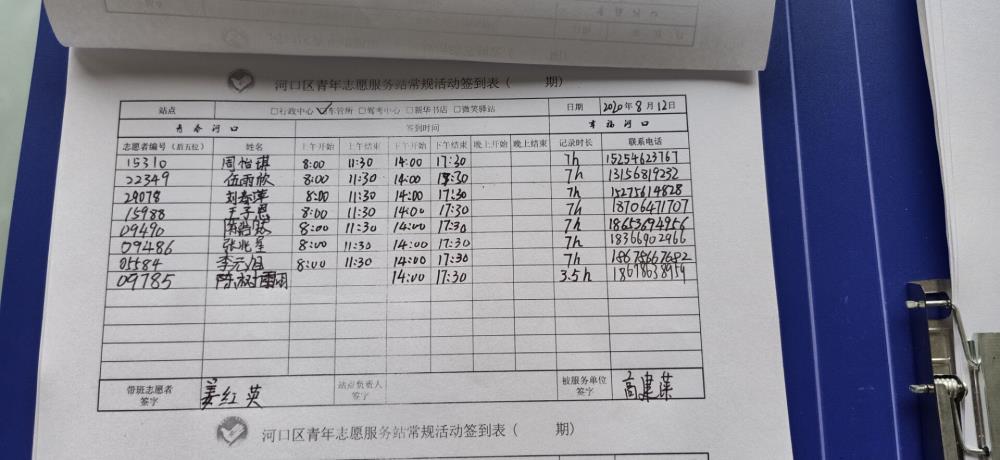 河口区青年志愿服务站常规活动签到表（ 期）
站点 □行政中心 ☑车管所 □驾考中心 □新华书店 □微笑驿站 日期 2020年8月12日
青春河口 签到时间 幸福河口
志愿者编号（后五位） 姓名 上午开始 上午结束 下午开始 下午结束 晚上开始 晚上结束 记录时长 联系电话
15310 周怡琪 8:00 11:30 14:00 17:30 7h 15254623767
22349 伍雨欣 8:00 11:30 14:00 17:30 7h 13156819232
29078 刘春萍 8:00 11:30 14:00 17:30 7h 15275614828
15988 王子恩 8:00 11:30 14:00 17:30 7h 18706471707
09490 8:00 11:30 14:00 17:30 7h 18653694956
09486 张兆星 8:00 11:30 14:00 17:30 7h 18366902966
01584 李元旭 8:00 11:30 14:00 17:30 7h 18678667682
09785 陈树雨 14:00 17:30 3.5h 18678638959
带班志愿者签字 姜红英 站点负责人签字 被服务单位签字 高建
河口区青年志愿服务站常规活动签到表（ 期）